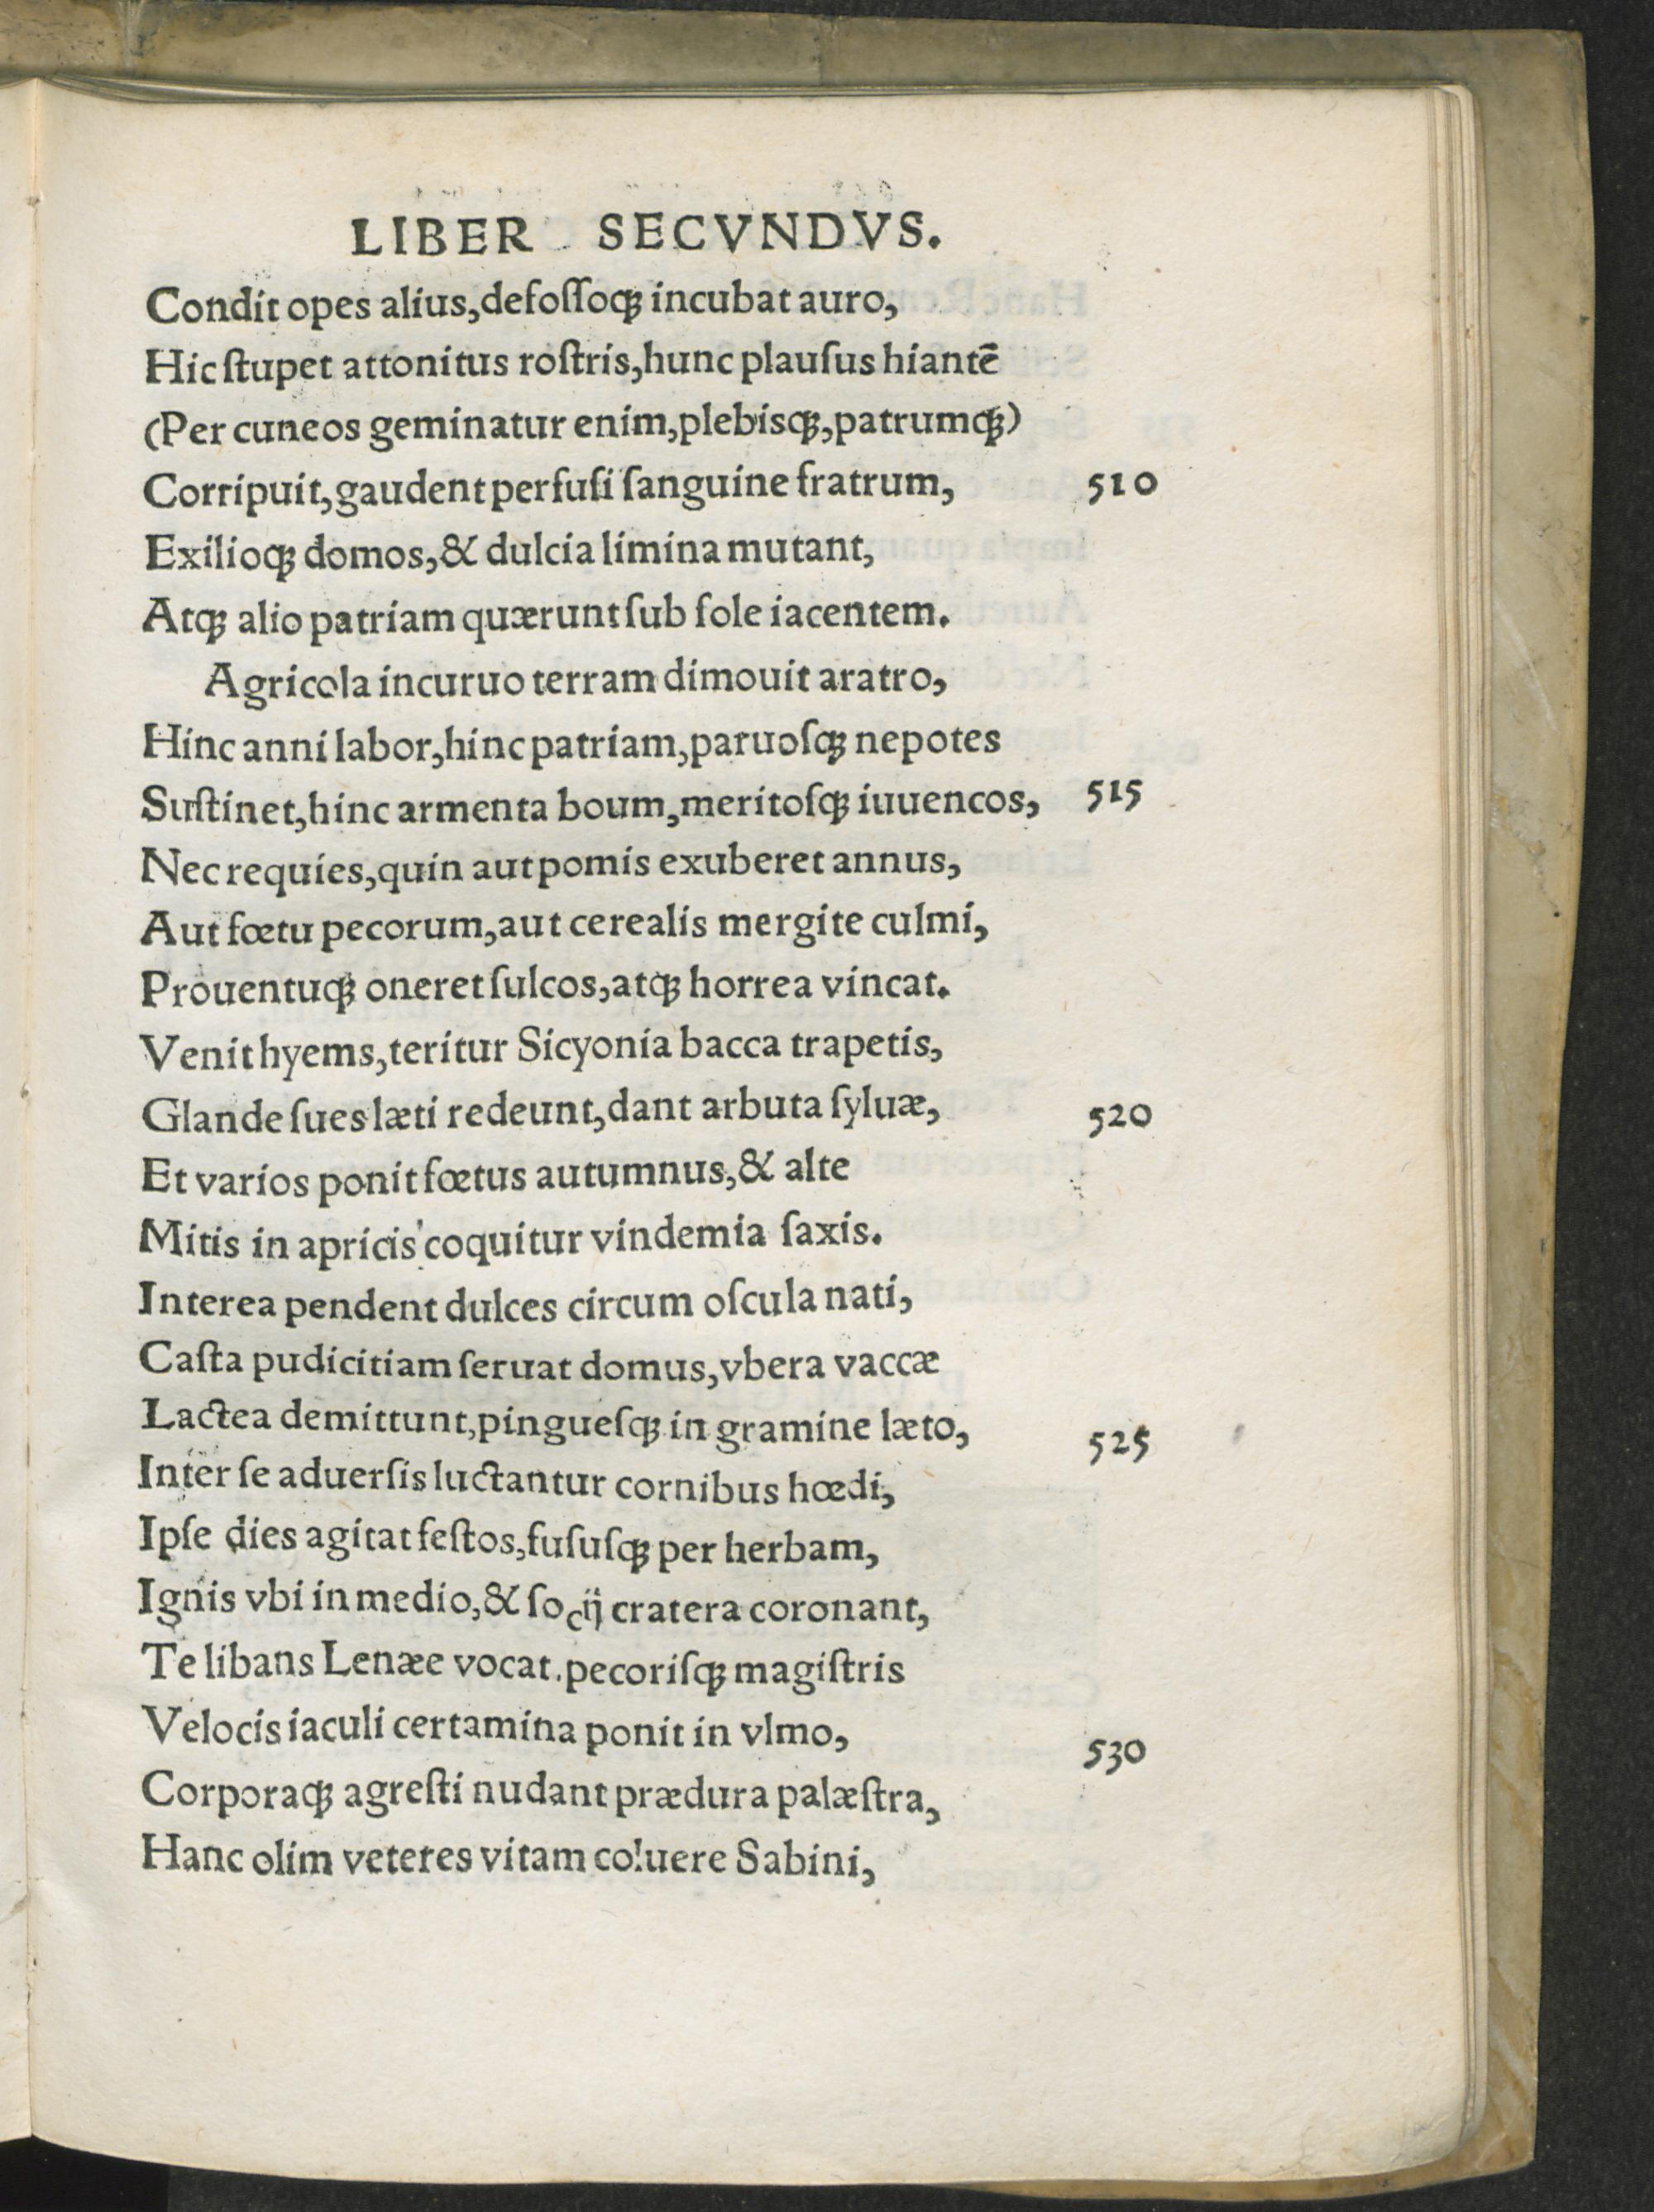 LIBER SECVNDVS.
Condit opes alius,defoſſoqꝫ incubat auro,
Hic ſtupet attonitus roſtris,hunc plauſus hiantē
(Per cuneos geminatur enim,plebisqꝫ,patrumqꝫ)
Corripuit,gaudent perfuſi ſanguine fratrum, 510
Exilioqꝫ domos,& dulcia limina mutant,
Atqꝫ alio patriam quærunt ſub ſole iacentem.
Agricola incuruo terram dimouit aratro,
Hinc anni labor,hinc patriam,paruoſqꝫ nepotes
Suſtinet,hinc armenta boum,meritoſqꝫ iuuencos, 515
Nec requies,quin aut pomis exuberet annus,
Aut fœtu pecorum,aut cerealis mergite culmi,
Prouentuqꝫ oneret ſulcos,atqꝫ horrea vincat.
Venit hyems,teritur Sicyonia bacca trapetis,
Glande ſues læti redeunt,dant arbuta ſyluæ, 520
Et varios ponit fœtus autumnus,& alte
Mitis in apricis coquitur vindemia ſaxis.
Interea pendent dulces circum oſcula nati,
Caſta pudicitiam ſeruat domus,vbera vaccæ
Lactea demittunt,pingueſqꝫ in gramine læto, 525
Inter ſe aduerſis luctantur cornibus hœdi,
Ipſe dies agitat feſtos,fuſuſqꝫ per herbam,
Ignis vbi in medio,& ſocij cratera coronant,
Te libans Lenæe vocat.pecoriſqꝫ magiſtris
Velocis iaculi certamina ponit in vlmo, 530
Corporaqꝫ agreſti nudant prædura palæſtra,
Hanc olim veteres vitam coluere Sabini,